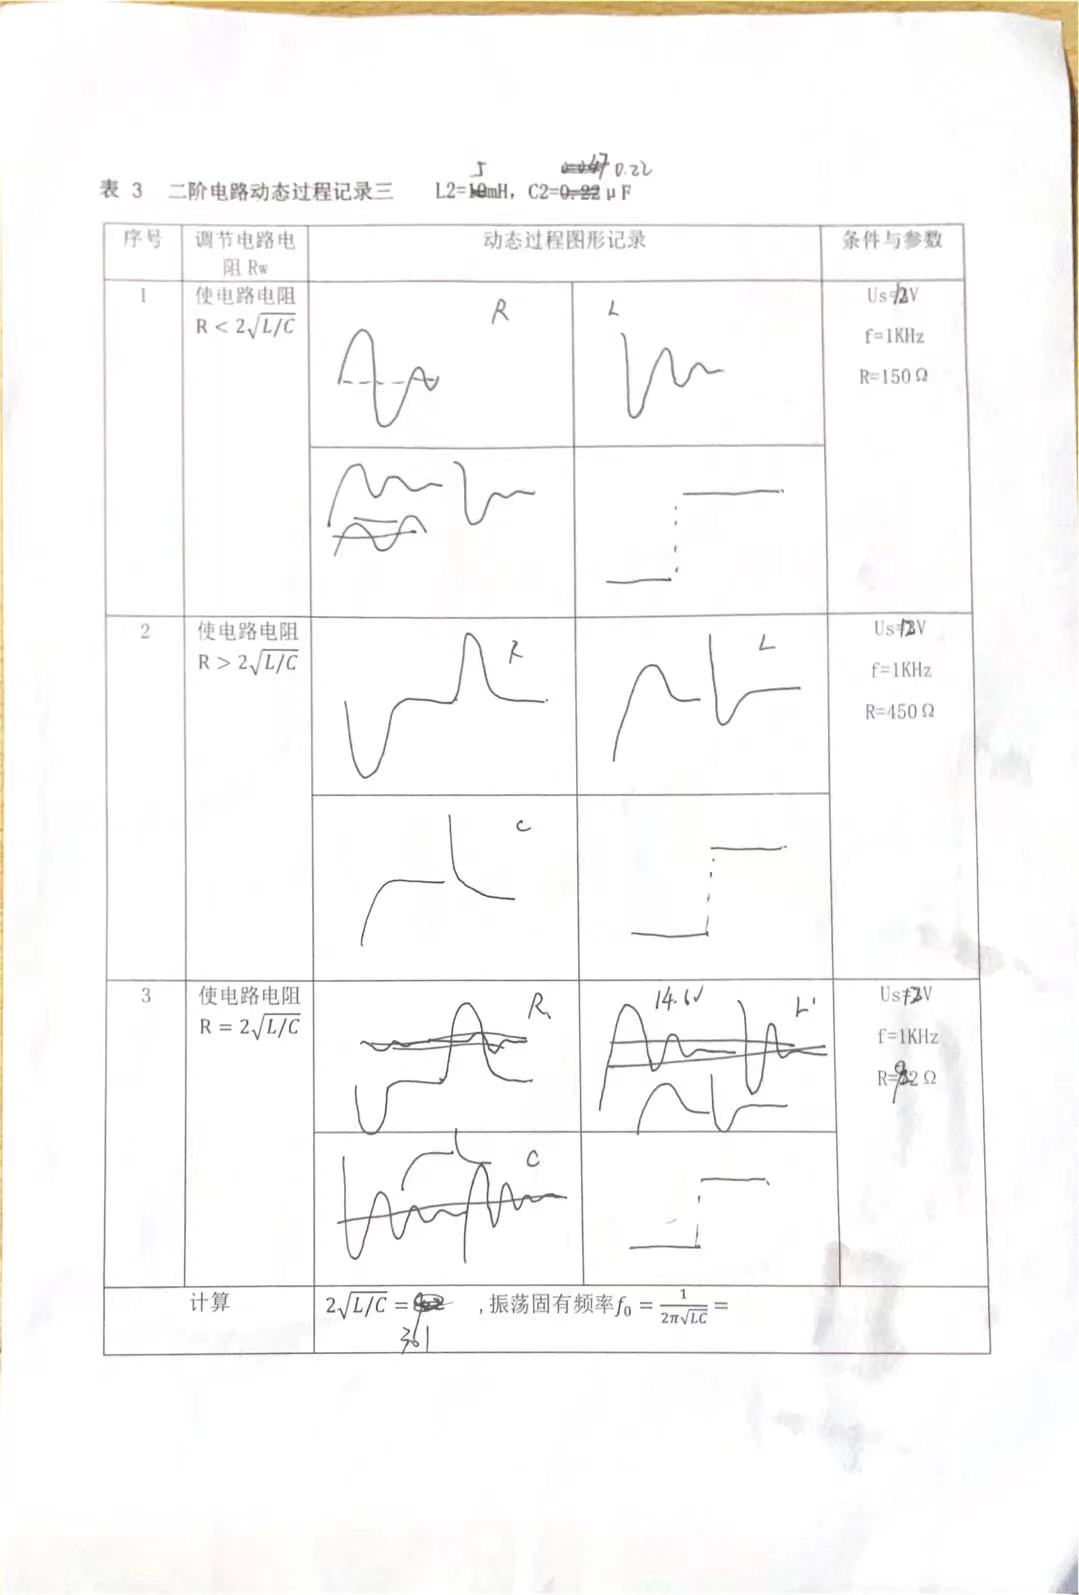 0.047 0.22
5
表 3 二阶电路动态过程记录三 L2=10mH, C2=0.22μF
序号 调节电路电阻 Rw 动态过程图形记录 条件与参数
1 使电路电阻 R < 2√L/C
R L
Us=12V
f=1KHz
R=150Ω
2 使电路电阻 R > 2√L/C
R L
C
Us=12V
f=1KHz
R=450Ω
3 使电路电阻 R = 2√L/C
R 14.6V L
C
Us=12V
f=1KHz
计算 2√L/C = ,振荡固有频率f₀ = 1/2π√LC =
301